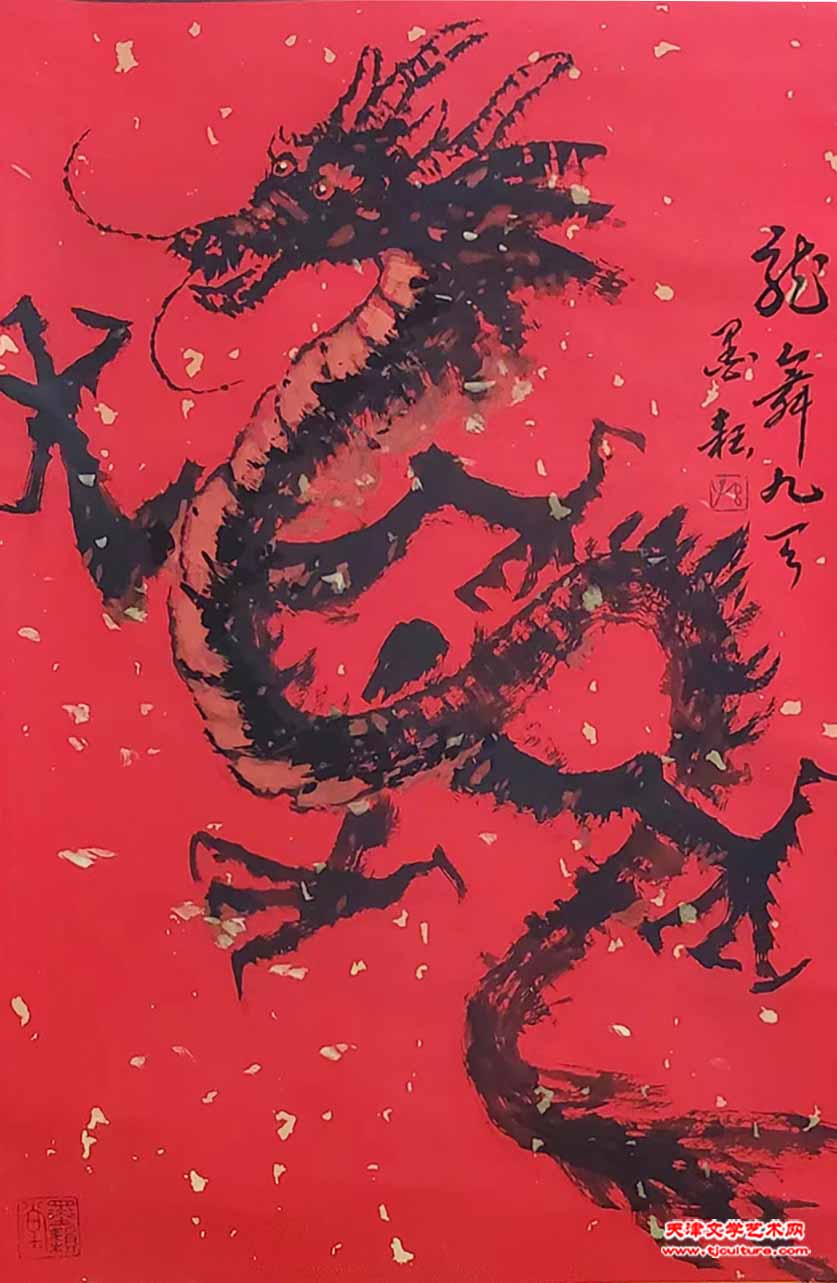 龍舞九天
墨耘
天津文学艺术网
www.tjculture.com